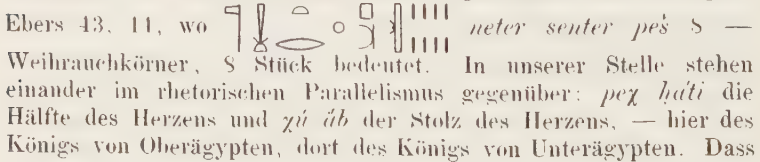 Ebers 43. 11, wo neter senter peš 8 —
Weihrauchkörner, 8 Stück bedeutet. In unserer Stelle stehen
einander im rhetorischen Parallelismus gegenüber: peχ ḥáti die
Hälfte des Herzens und χú áb der Stolz des Herzens, — hier des
Königs von Oberägypten, dort des Königs von Unterägypten. Dass